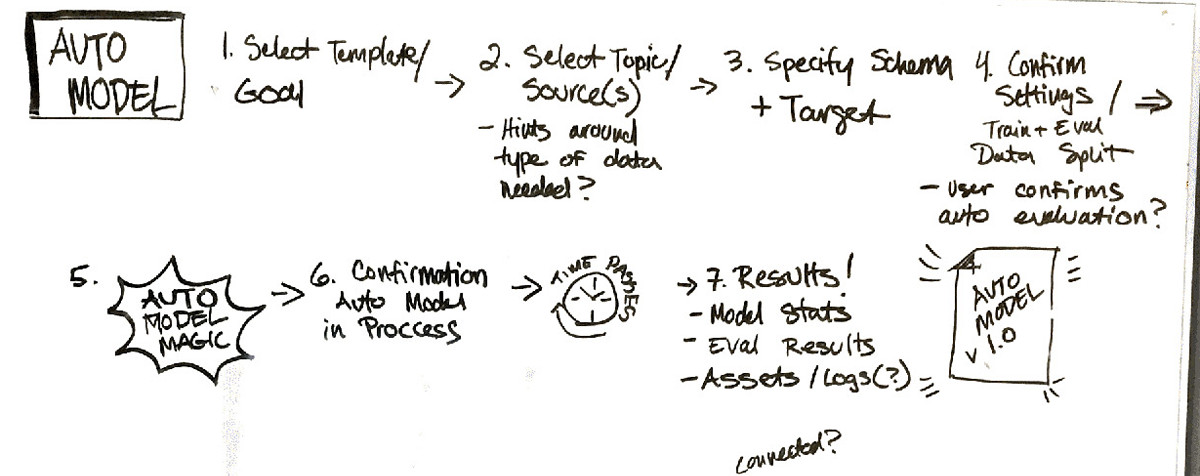 AUTO
MODEL
1. Select Template/
Goal
→ 2. Select Topic/
Source(s)
- Hints around
type of data
needed?
→ 3. Specify Schema
+ Target
4. Confirm
Settings /
Train + Eval
Data Split
- User confirms
auto evaluation?
⇒
5.
AUTO
MODEL
MAGIC
→ 6. Confirmation
Auto Model
in Proccess
→ TIME PASSES
→ 7. Results!
- Model Stats
- Eval Results
- Assets / Logs(?)
AUTO
MODEL
v 1.0
connected?